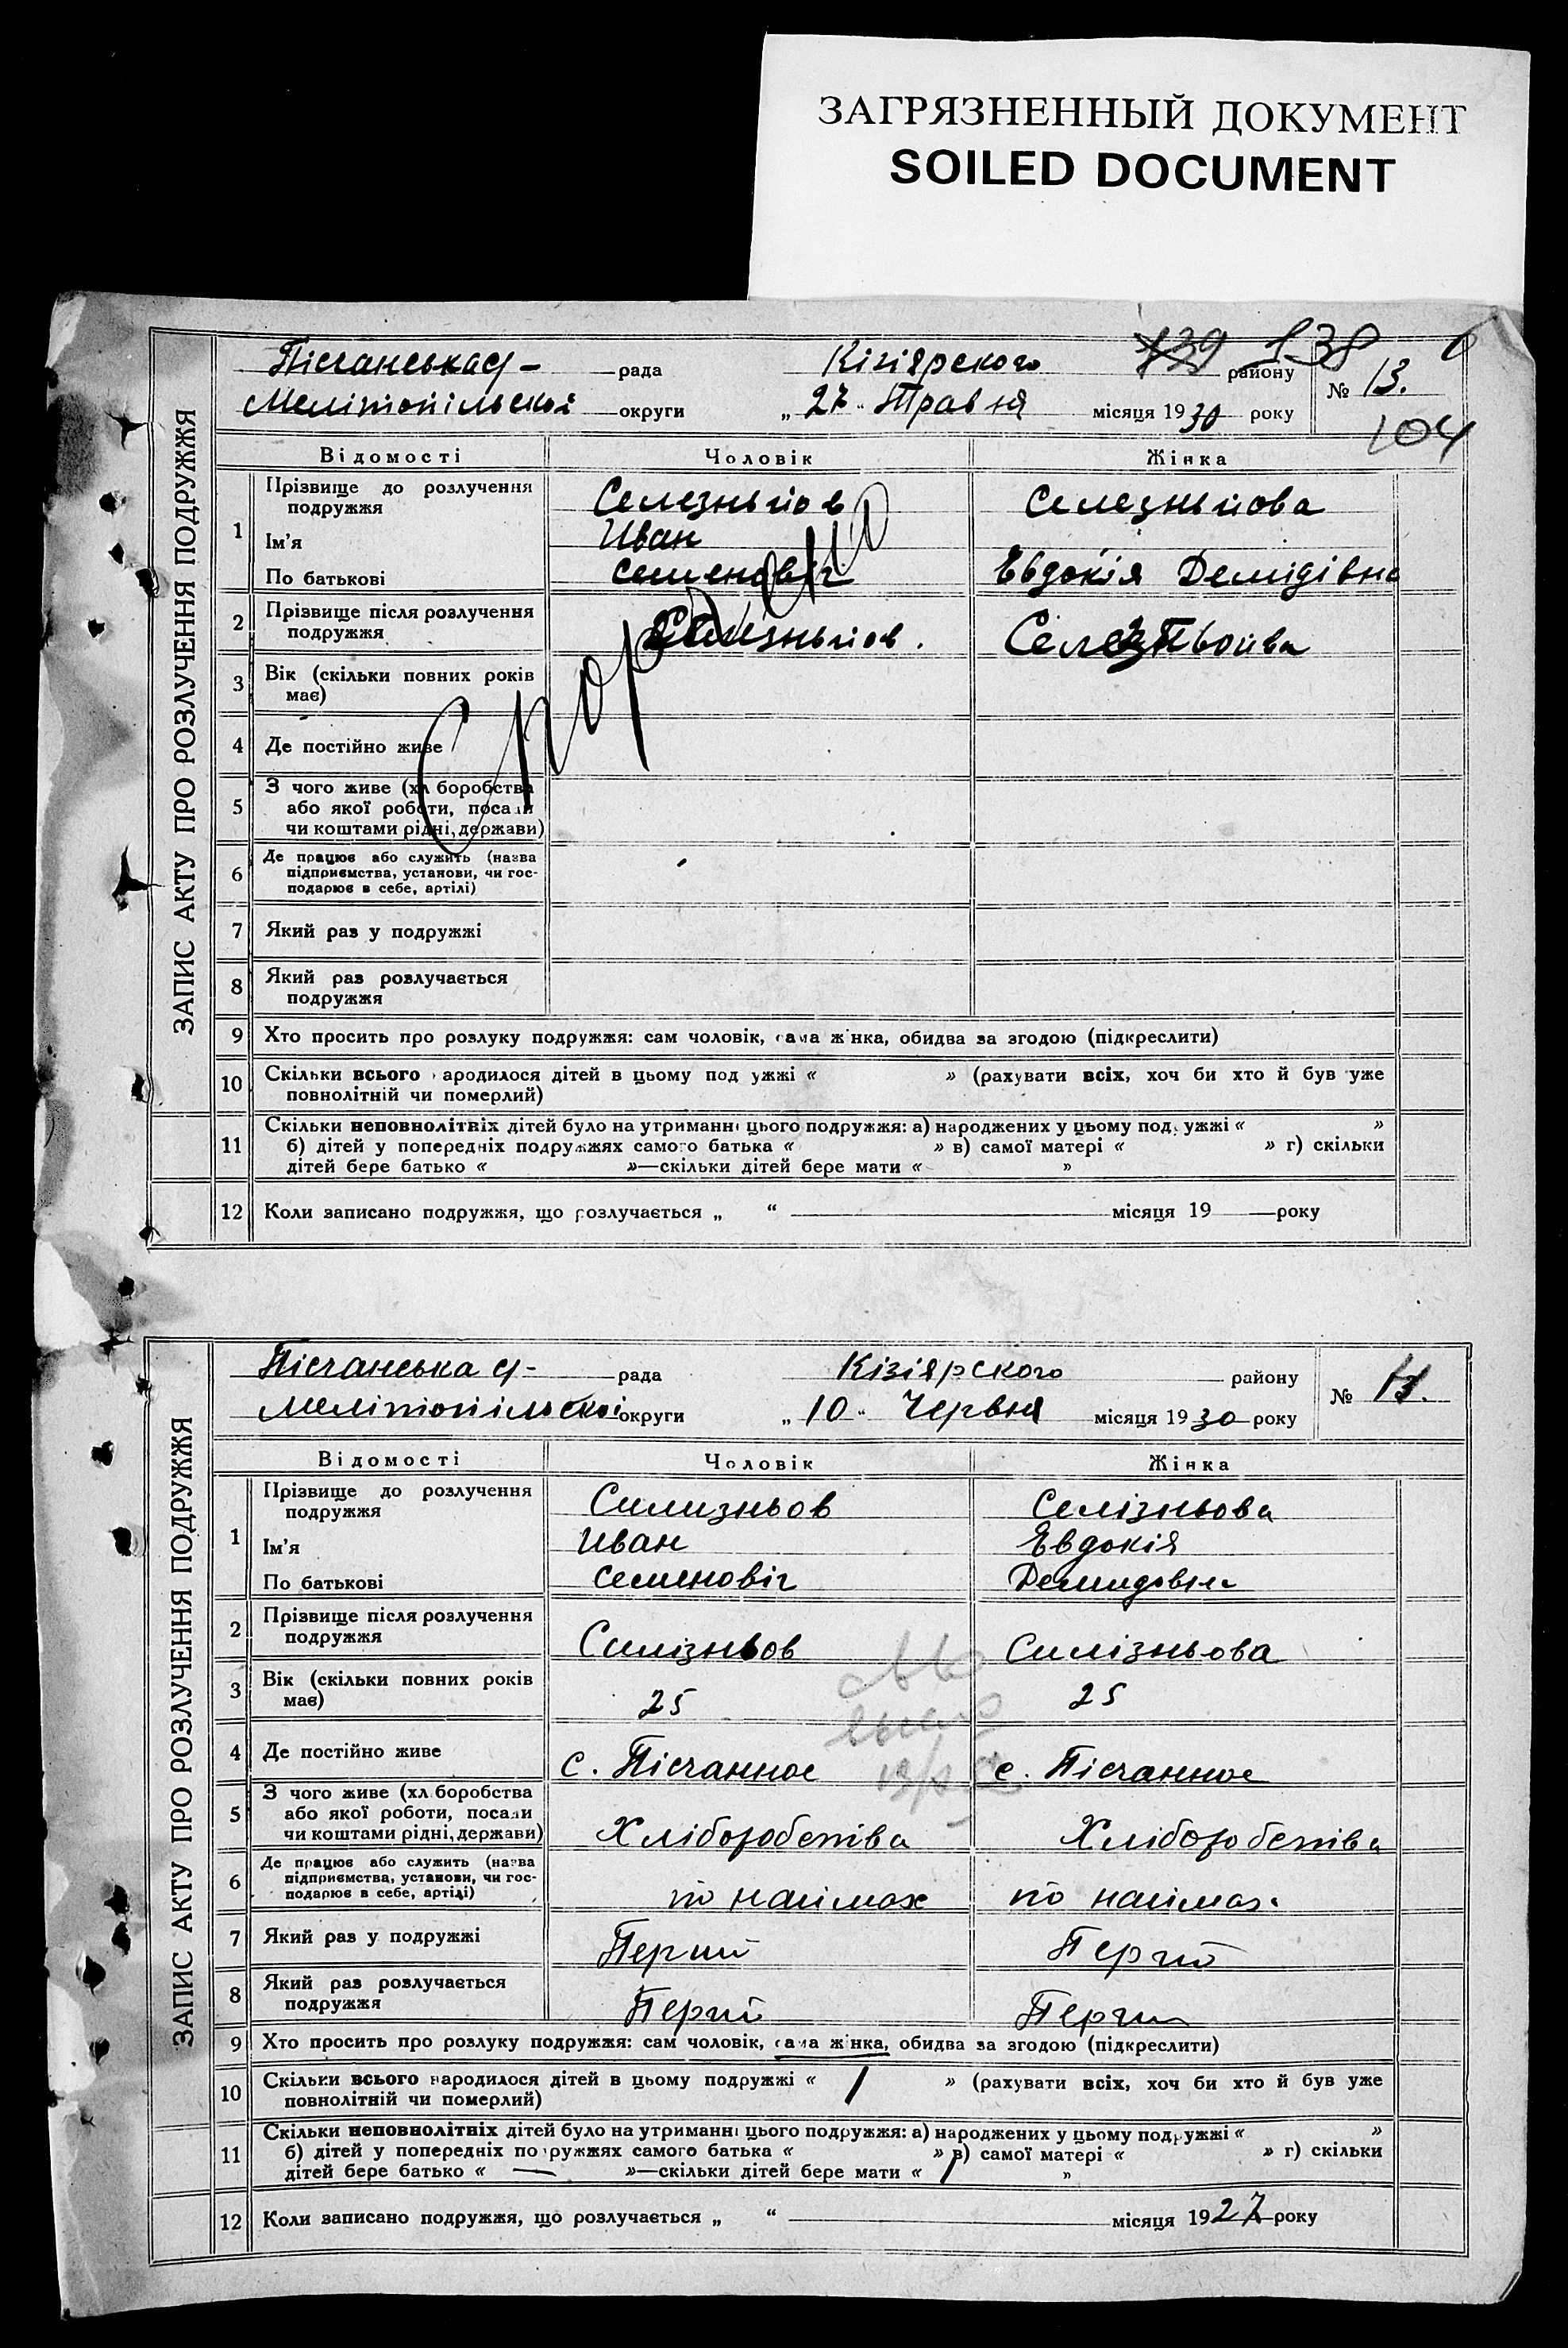 ЗАГРЯЗНЕННЫЙ ДОКУМЕНТ
SOILED DOCUMENT
139 138
ЗАПИС АКТУ ПРО РОЗЛУЧЕННЯ ПОДРУЖЖЯ
Пісчанська с/- рада Кізіярского району № 13.
Мелітопільскої округи „ 27 “ Травня місяця 1930 року
104
Відомості Чоловік Жінка
1 Прізвище до розлучення Селезньиов Селезньиова
подружжя
Ім'я Иван
По батькові Семеновіч Евдокія Демідівна
2 Прізвище після розлучення Селізньиов. Селезньоива
подружжя
Спорчено
3 Вік (скільки повних років
має)
4 Де постійно живе
5 З чого живе (хл боробства
або якої роботи, посади
чи коштами рідні, держави)
6 Де працює або служить (назва
підприємства, установи, чи гос-
подарює в себе, артілі)
7 Який раз у подружжі
8 Який раз розлучається
подружжя
9 Хто просить про розлуку подружжя: сам чоловік, сама жінка, обидва за згодою (підкреслити)
10 Скільки всього народилося дітей в цьому подружжі « » (рахувати всіх, хоч би хто й був уже
повнолітній чи померлий)
11 Скільки неповнолітніх дітей було на утриманні цього подружжя: а) народжених у цьому подружжі « »
б) дітей у попередніх подружжях самого батька « » в) самої матері « » г) скільки
дітей бере батько « »—скільки дітей бере мати « »
12 Коли записано подружжя, що розлучається „ “ місяця 19 року
ЗАПИС АКТУ ПРО РОЗЛУЧЕННЯ ПОДРУЖЖЯ
Пісчанська с/- рада Кізіярского району № 14.
Мелітопільскої округи „ 10 “ Червня місяця 1930 року
Відомості Чоловік Жінка
1 Прізвище до розлучення Силизньов Селізньова
подружжя
Ім'я Иван Евдокія
По батькові Семеновіч Демидовна
2 Прізвище після розлучення Силізньов Силізньова
подружжя
3 Вік (скільки повних років 25 25
має)
4 Де постійно живе с. Пісчанное с. Пісчанное
5 З чого живе (хл боробства
або якої роботи, посади
чи коштами рідні, держави) Хліборобства Хліборобства
6 Де працює або служить (назва
підприємства, установи, чи гос-
подарює в себе, артілі) по наимах по наимах.
7 Який раз у подружжі Перши Перши
8 Який раз розлучається Перши Перши
подружжя
9 Хто просить про розлуку подружжя: сам чоловік, сама жінка, обидва за згодою (підкреслити)
10 Скільки всього народилося дітей в цьому подружжі « 1 » (рахувати всіх, хоч би хто й був уже
повнолітній чи померлий)
11 Скільки неповнолітніх дітей було на утриманні цього подружжя: а) народжених у цьому подружжі « »
б) дітей у попередніх подружжях самого батька « » в) самої матері « » г) скільки
дітей бере батько « — »—скільки дітей бере мати « 1 »
12 Коли записано подружжя, що розлучається „ “ місяця 1927 року